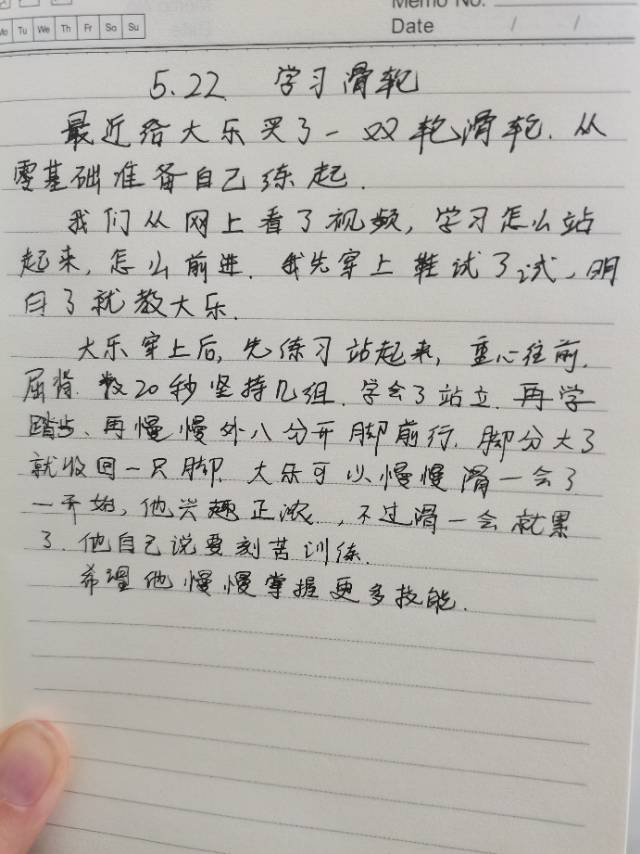 Memo No.
Mo Tu We Th Fr Sa Su
Date / /
5.22. 学习滑轮
最近给大乐买了一双轮滑轮.从
零基础准备自己练起.
我们从网上看了视频,学习怎么站
起来,怎么前进.我先穿上鞋试了试,明
白了就教大乐.
大乐穿上后,先练习站起来,重心往前.
屈背.数20秒坚持几组.学会了站立.再学
踏步、再慢慢外八分开脚前行.脚分大了
就收回一只脚.大乐可以慢慢滑一会了
一开始,他兴趣正浓.,不过滑一会就累
了.他自己说要刻苦训练.
希望他慢慢掌握更多技能.